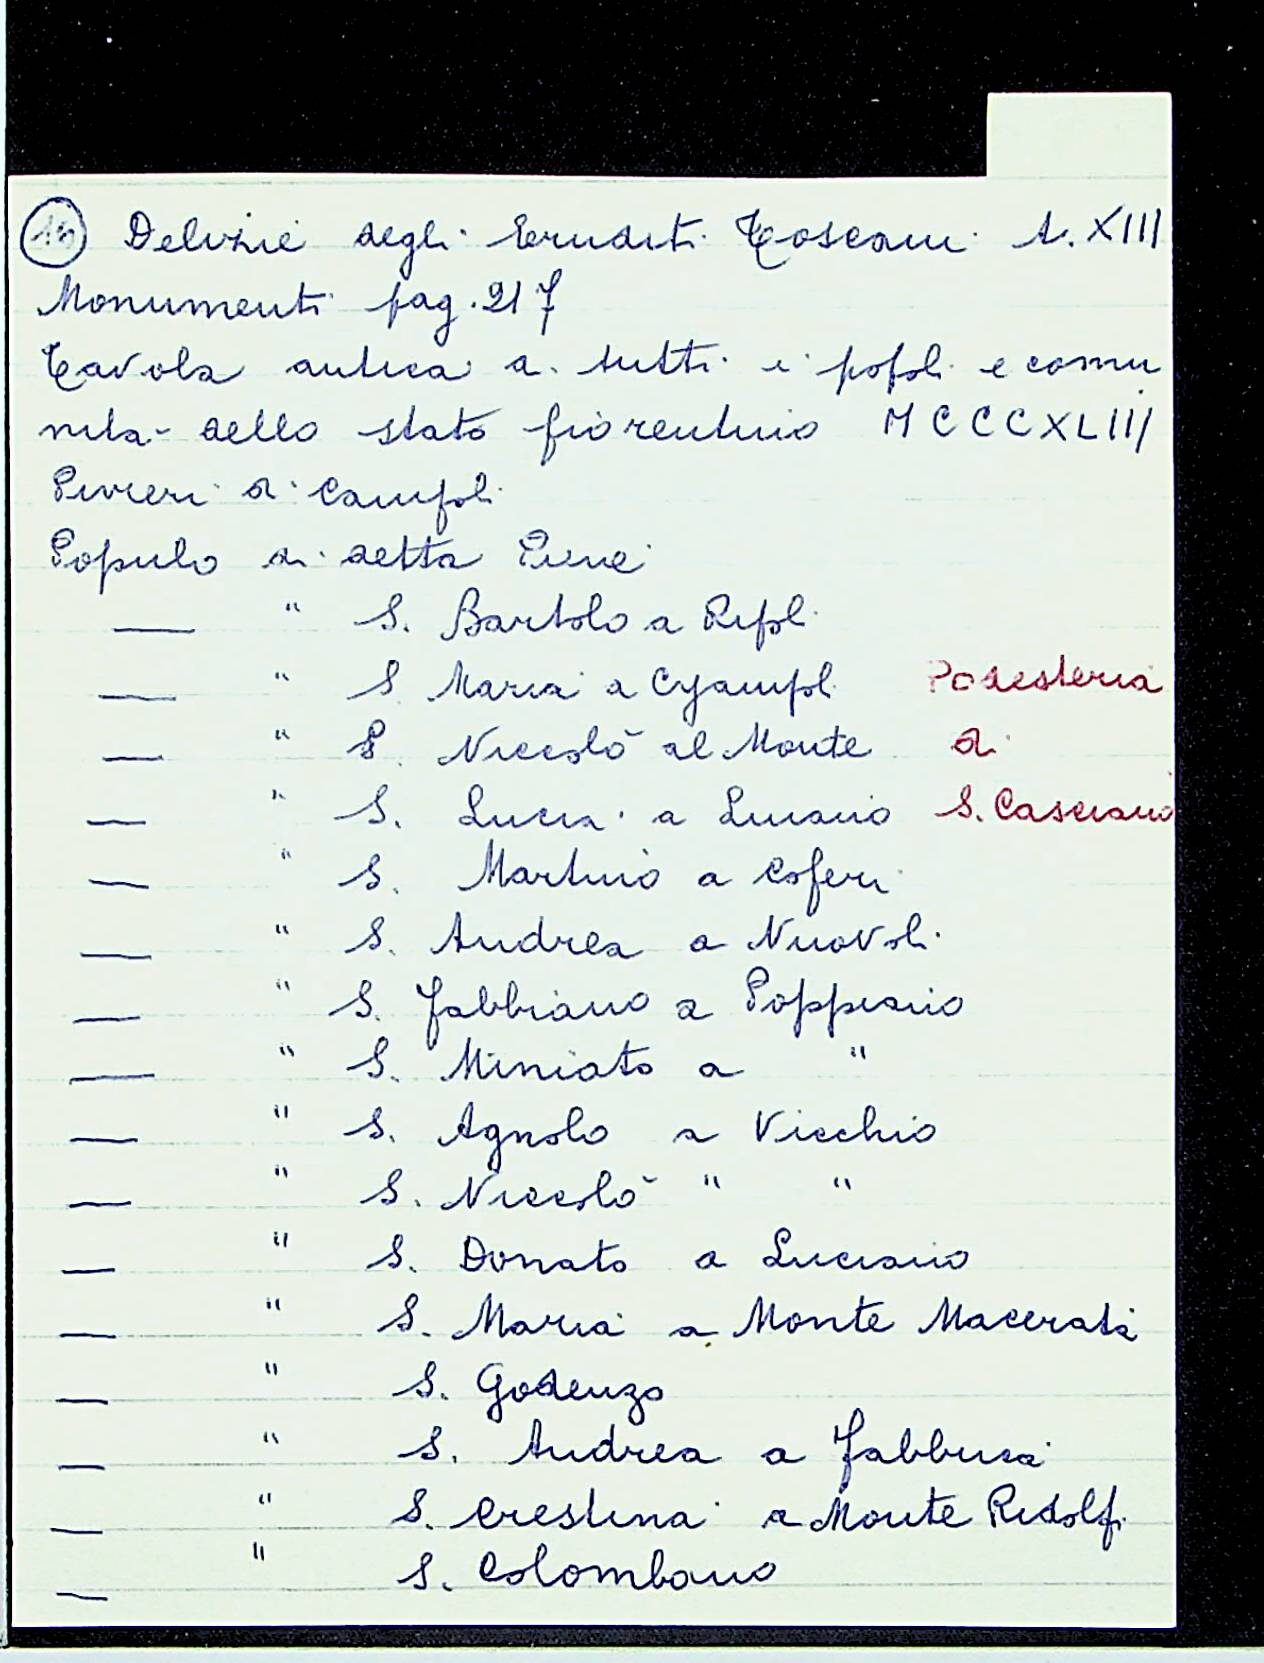 15 Delizie degli Eruditi Toscani t. XIII
Monumenti pag. 217
Tavola antica di tutti i popoli e comu
nità dello stato fiorentino MCCCXLIII
Pivieri di Campoli
Populo di detta Pieve
— " S. Bartolo a Ripoli
— " S Maria a Cyampoli Podesteria
— " S. Niccolò al Monte di
— " S. Lucia a Luciano S. Casciano
— " S. Martino a Cofferi
— " S. Andrea a Nuovoli
— " S. Fabbiano a Poppiano
— " S. Miniato a "
— " S. Agnolo a Vicchio
— " S. Niccolò " "
— " S. Donato a Luciano
— " S. Maria a Monte Macerata
— " S. Godenzo
— " S. Andrea a Fabbrica
— " S. Crestina a Monte Ridolfi
— " S. Colombano